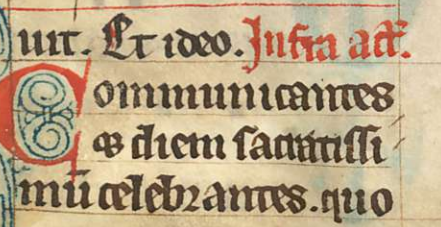 uit. Et ideo. Infra act̄.
Communicantes
⁊ diem sacratissi
mū celebrantes. quo